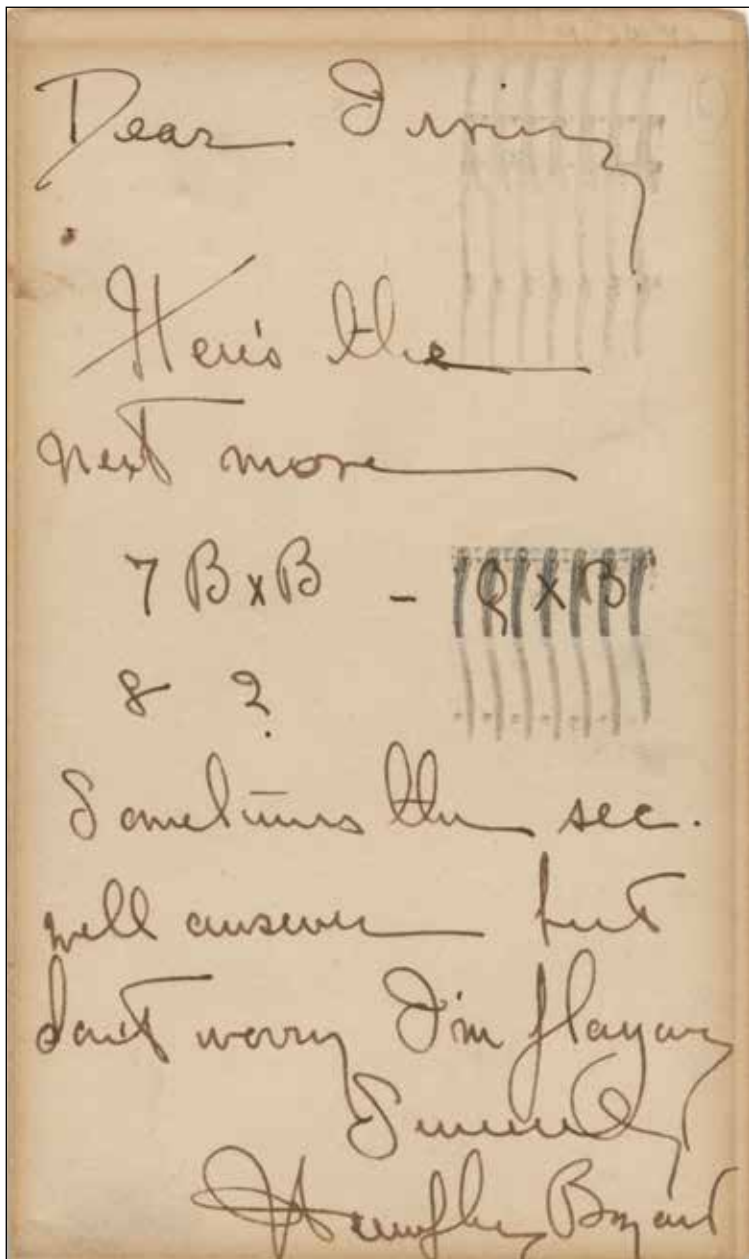 Dear Irving
Here's the
next move
7 B x B - Q x B
8 ?
Sometimes the sec.
will answer but
don't worry I'm playing
Sincerely
Humphrey Bogart